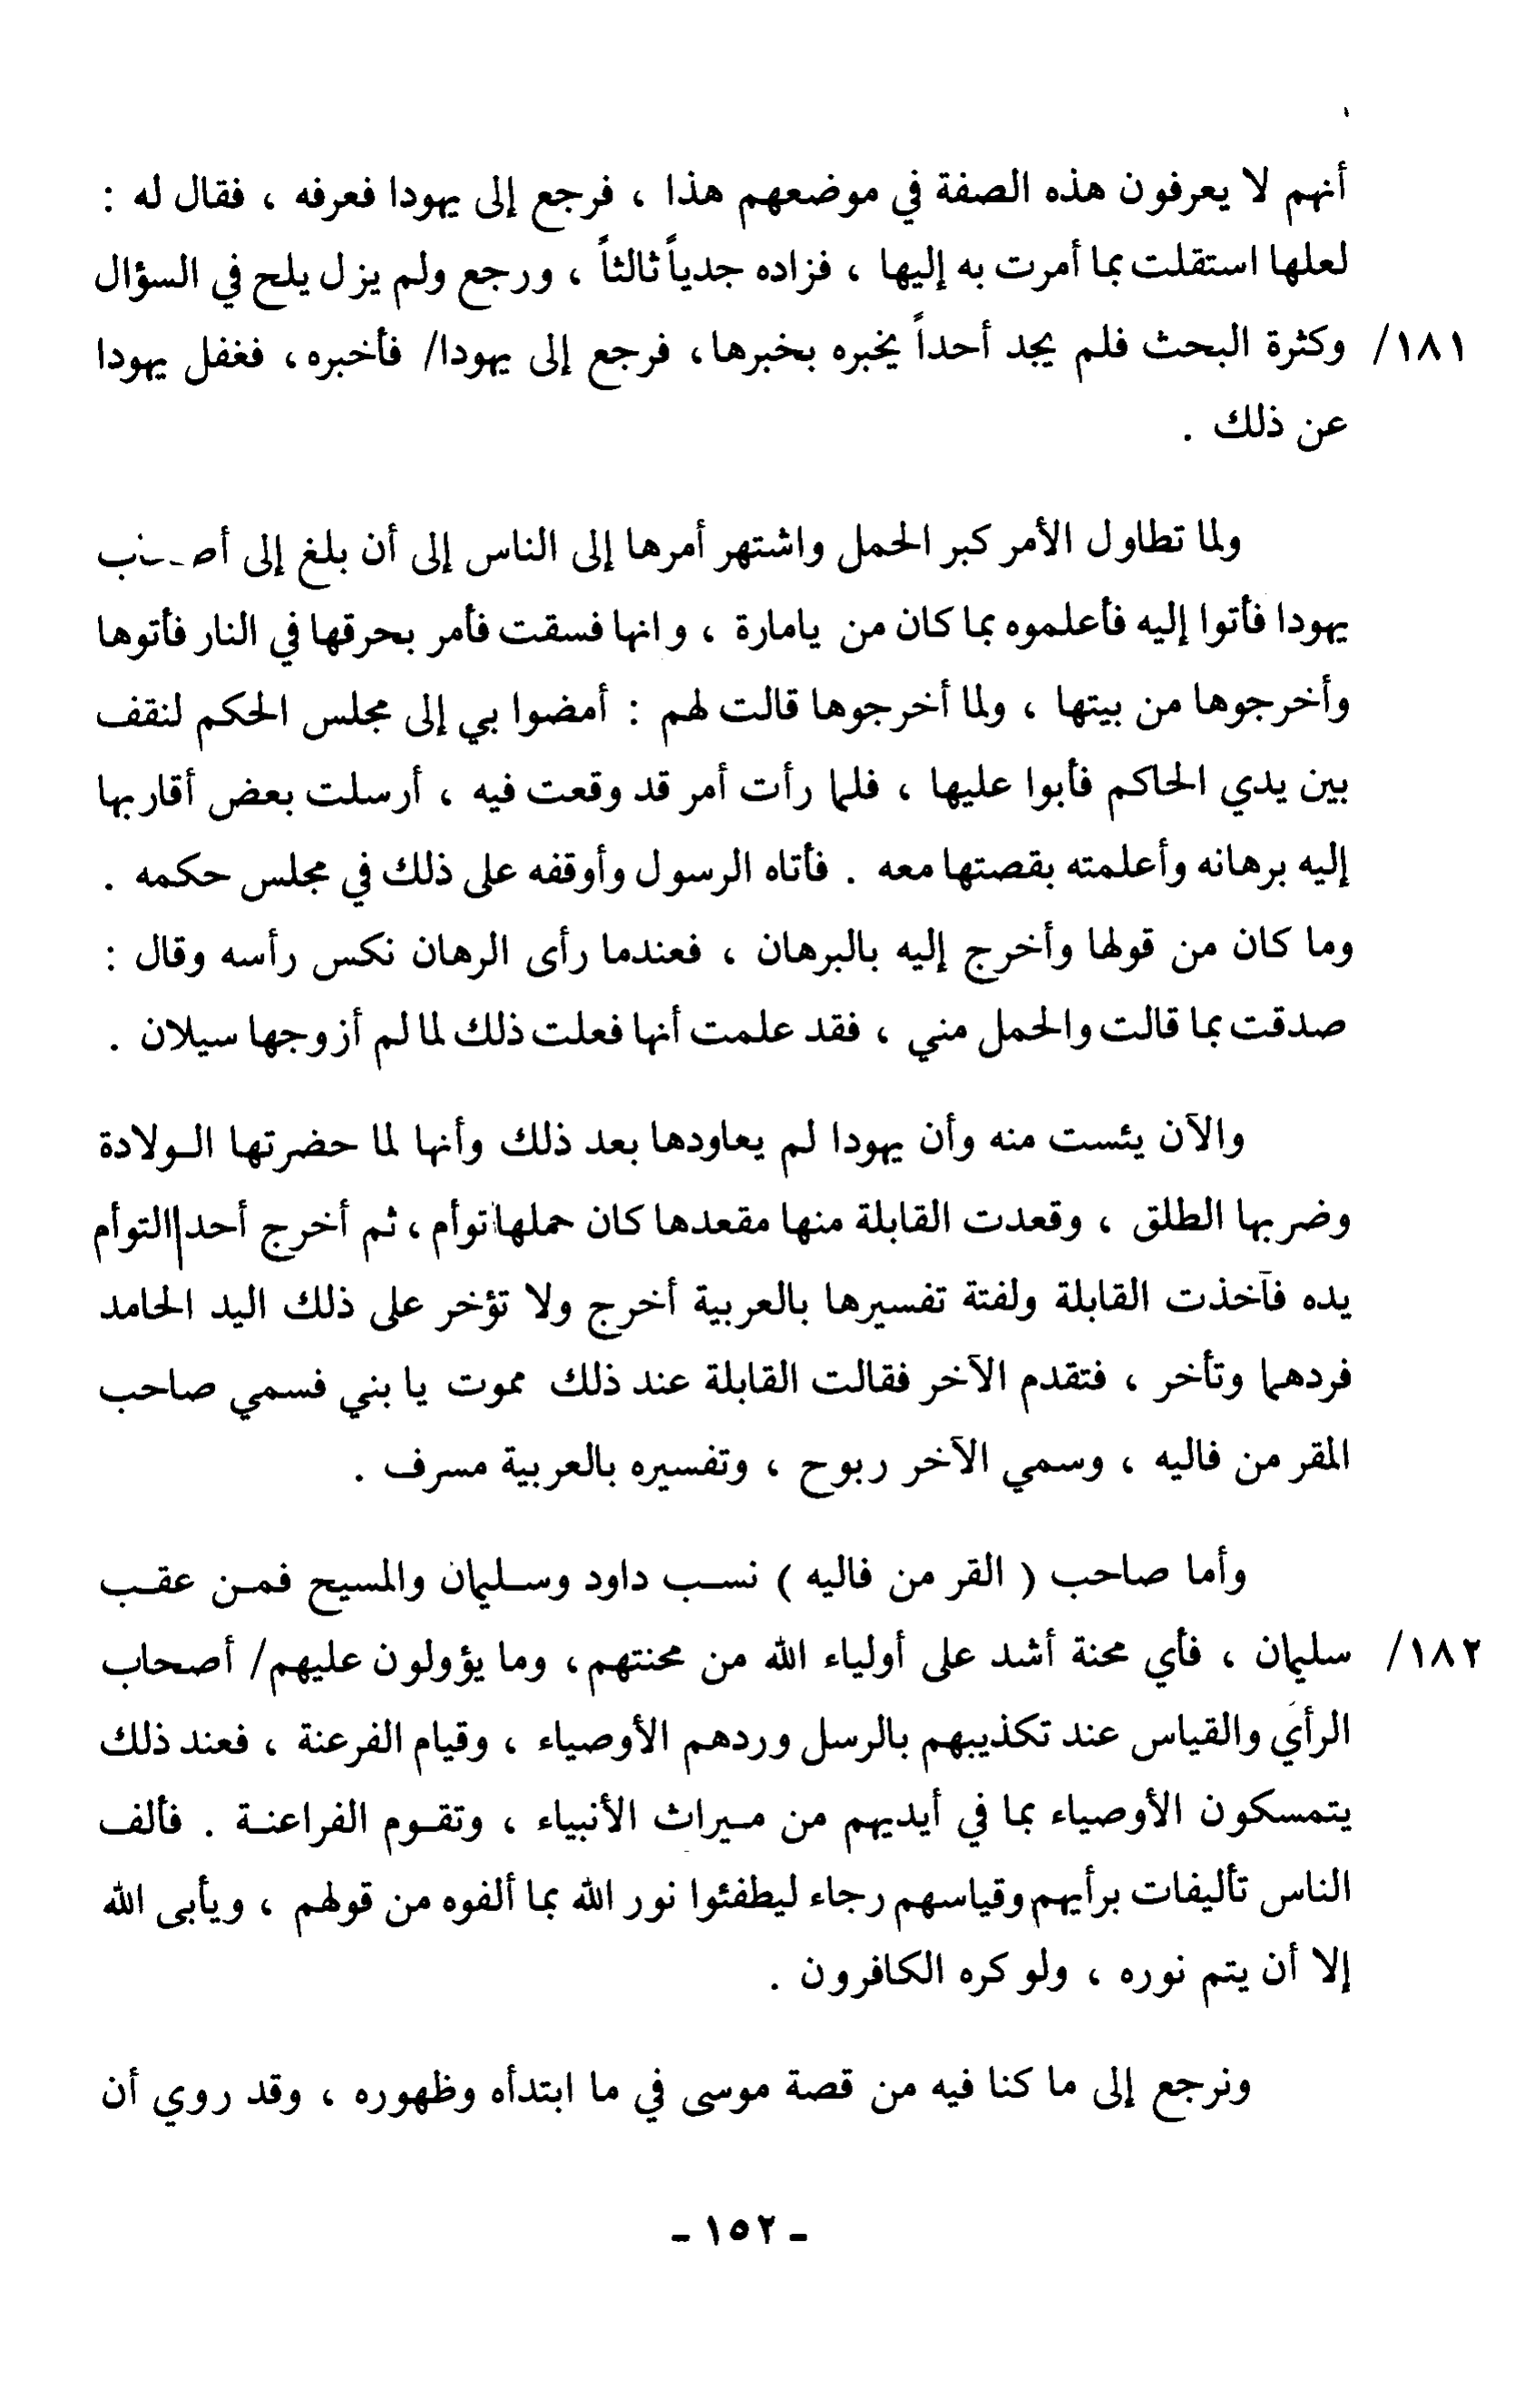 أنهم لا يعرفون هذه الصفة في موضعهم هذا ، فرجع إلى يهودا فعرفه ، فقال له :
لعلها استقلت بما أمرت به إليها ، فزاده جدياً ثالثاً ، ورجع ولم يزل يلح في السؤال
١٨١/ وكثرة البحث فلم يجد أحداً يخبره بخبرها، فرجع إلى يهودا/ فأخبره، فغفل يهودا
عن ذلك .
ولما تطاول الأمر كبر الحمل واشتهر أمرها إلى الناس إلى أن بلغ إلى
يهودا فأتوا إليه فأعلموه بما كان من يامارة ، وانها فسقت فأمر بحرقها في النار فأتوها
وأخرجوها من بيتها ، ولما أخرجوها قالت لهم : أمضوا بي إلى مجلس الحكم لنقف
بين يدي الحاكم فأبوا عليها ، فلما رأت أمر قد وقعت فيه ، أرسلت بعض أقاربها
إليه برهانه وأعلمته بقصتها معه . فأتاه الرسول وأوقفه على ذلك في مجلس حكمه .
وما كان من قولها وأخرج إليه بالبرهان ، فعندما رأى الرهان نكس رأسه وقال :
صدقت بما قالت والحمل مني ، فقد علمت أنها فعلت ذلك لما لم أزوجها سيلان .
والآن يئست منه وأن يهودا لم يعاودها بعد ذلك وأنها لما حضرتها الولادة
وضربها الطلق ، وقعدت القابلة منها مقعدها كان حملها توأم ، ثم أخرج أحد التوأم
يده فآخذت القابلة ولفتة تفسيرها بالعربية أخرج ولا تؤخر على ذلك اليد الحامد
فردهما وتأخر ، فتقدم الآخر فقالت القابلة عند ذلك مموت يا بني فسمي صاحب
المقر من فاليه ، وسمي الآخر ربوح ، وتفسيره بالعربية مسرف .
وأما صاحب ( القر من فاليه ) نسب داود وسليمان والمسيح فمن عقب
١٨٢/ سليمان ، فأي محنة أشد على أولياء الله من محنتهم، وما يؤولون عليهم/ أصحاب
الرأي والقياس عند تكذيبهم بالرسل وردهم الأوصياء ، وقيام الفرعنة ، فعند ذلك
يتمسكون الأوصياء بما في أيديهم من ميراث الأنبياء ، وتقوم الفراعنة . فألف
الناس تأليفات برأيهم وقياسهم رجاء ليطفئوا نور الله بما ألفوه من قولهم ، ويأبى الله
إلا أن يتم نوره ، ولو كره الكافرون .
ونرجع إلى ما كنا فيه من قصة موسى في ما ابتدأه وظهوره ، وقد روي أن
- ١٥٢ -